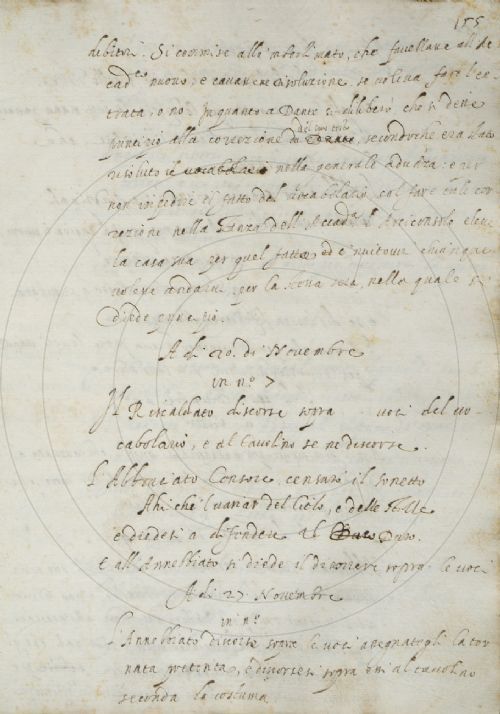 155
debitori. Si commise allo 'nferinato, che favellare all' Ac
cad.co nuovo: e cavarne risoluzione, se voleva fare l'en
trata, o no. In quanto a Dante si diliberò che si desse
principio alla correzione di Dante, secondoche era stato
risoluto il vocabolario nella generale Adunanza: e per
non impedire il fatto del vocabolario, col fare tale cor
rezione nella stanza dell' Accad.a l' Arciconsolo elesse
la casa sua per quel fatto ed e' nvitovvi chiunque
voleva andare, per la sera, nella quale si
diede principio.
A dì 20. di Novembre
in n.o 7
Il Riscaldato discorse sopra voci del vo
cabolario, e al Tavolino se ne discorse.
L'Abbonciato Censore, censurò il sonetto
Ahi che 'l variar del Cielo, e delle stelle
e diedesi a difendere al Duro.
E all'Annebbiato si diede il discorrere sopra le voci
A dì 27 Novembre
in n.o
L'Annebbiato discorse sopra le voci assegnategli la tor
nata passata, e discorsesi sopra essi al tavolino
secondo la costuma